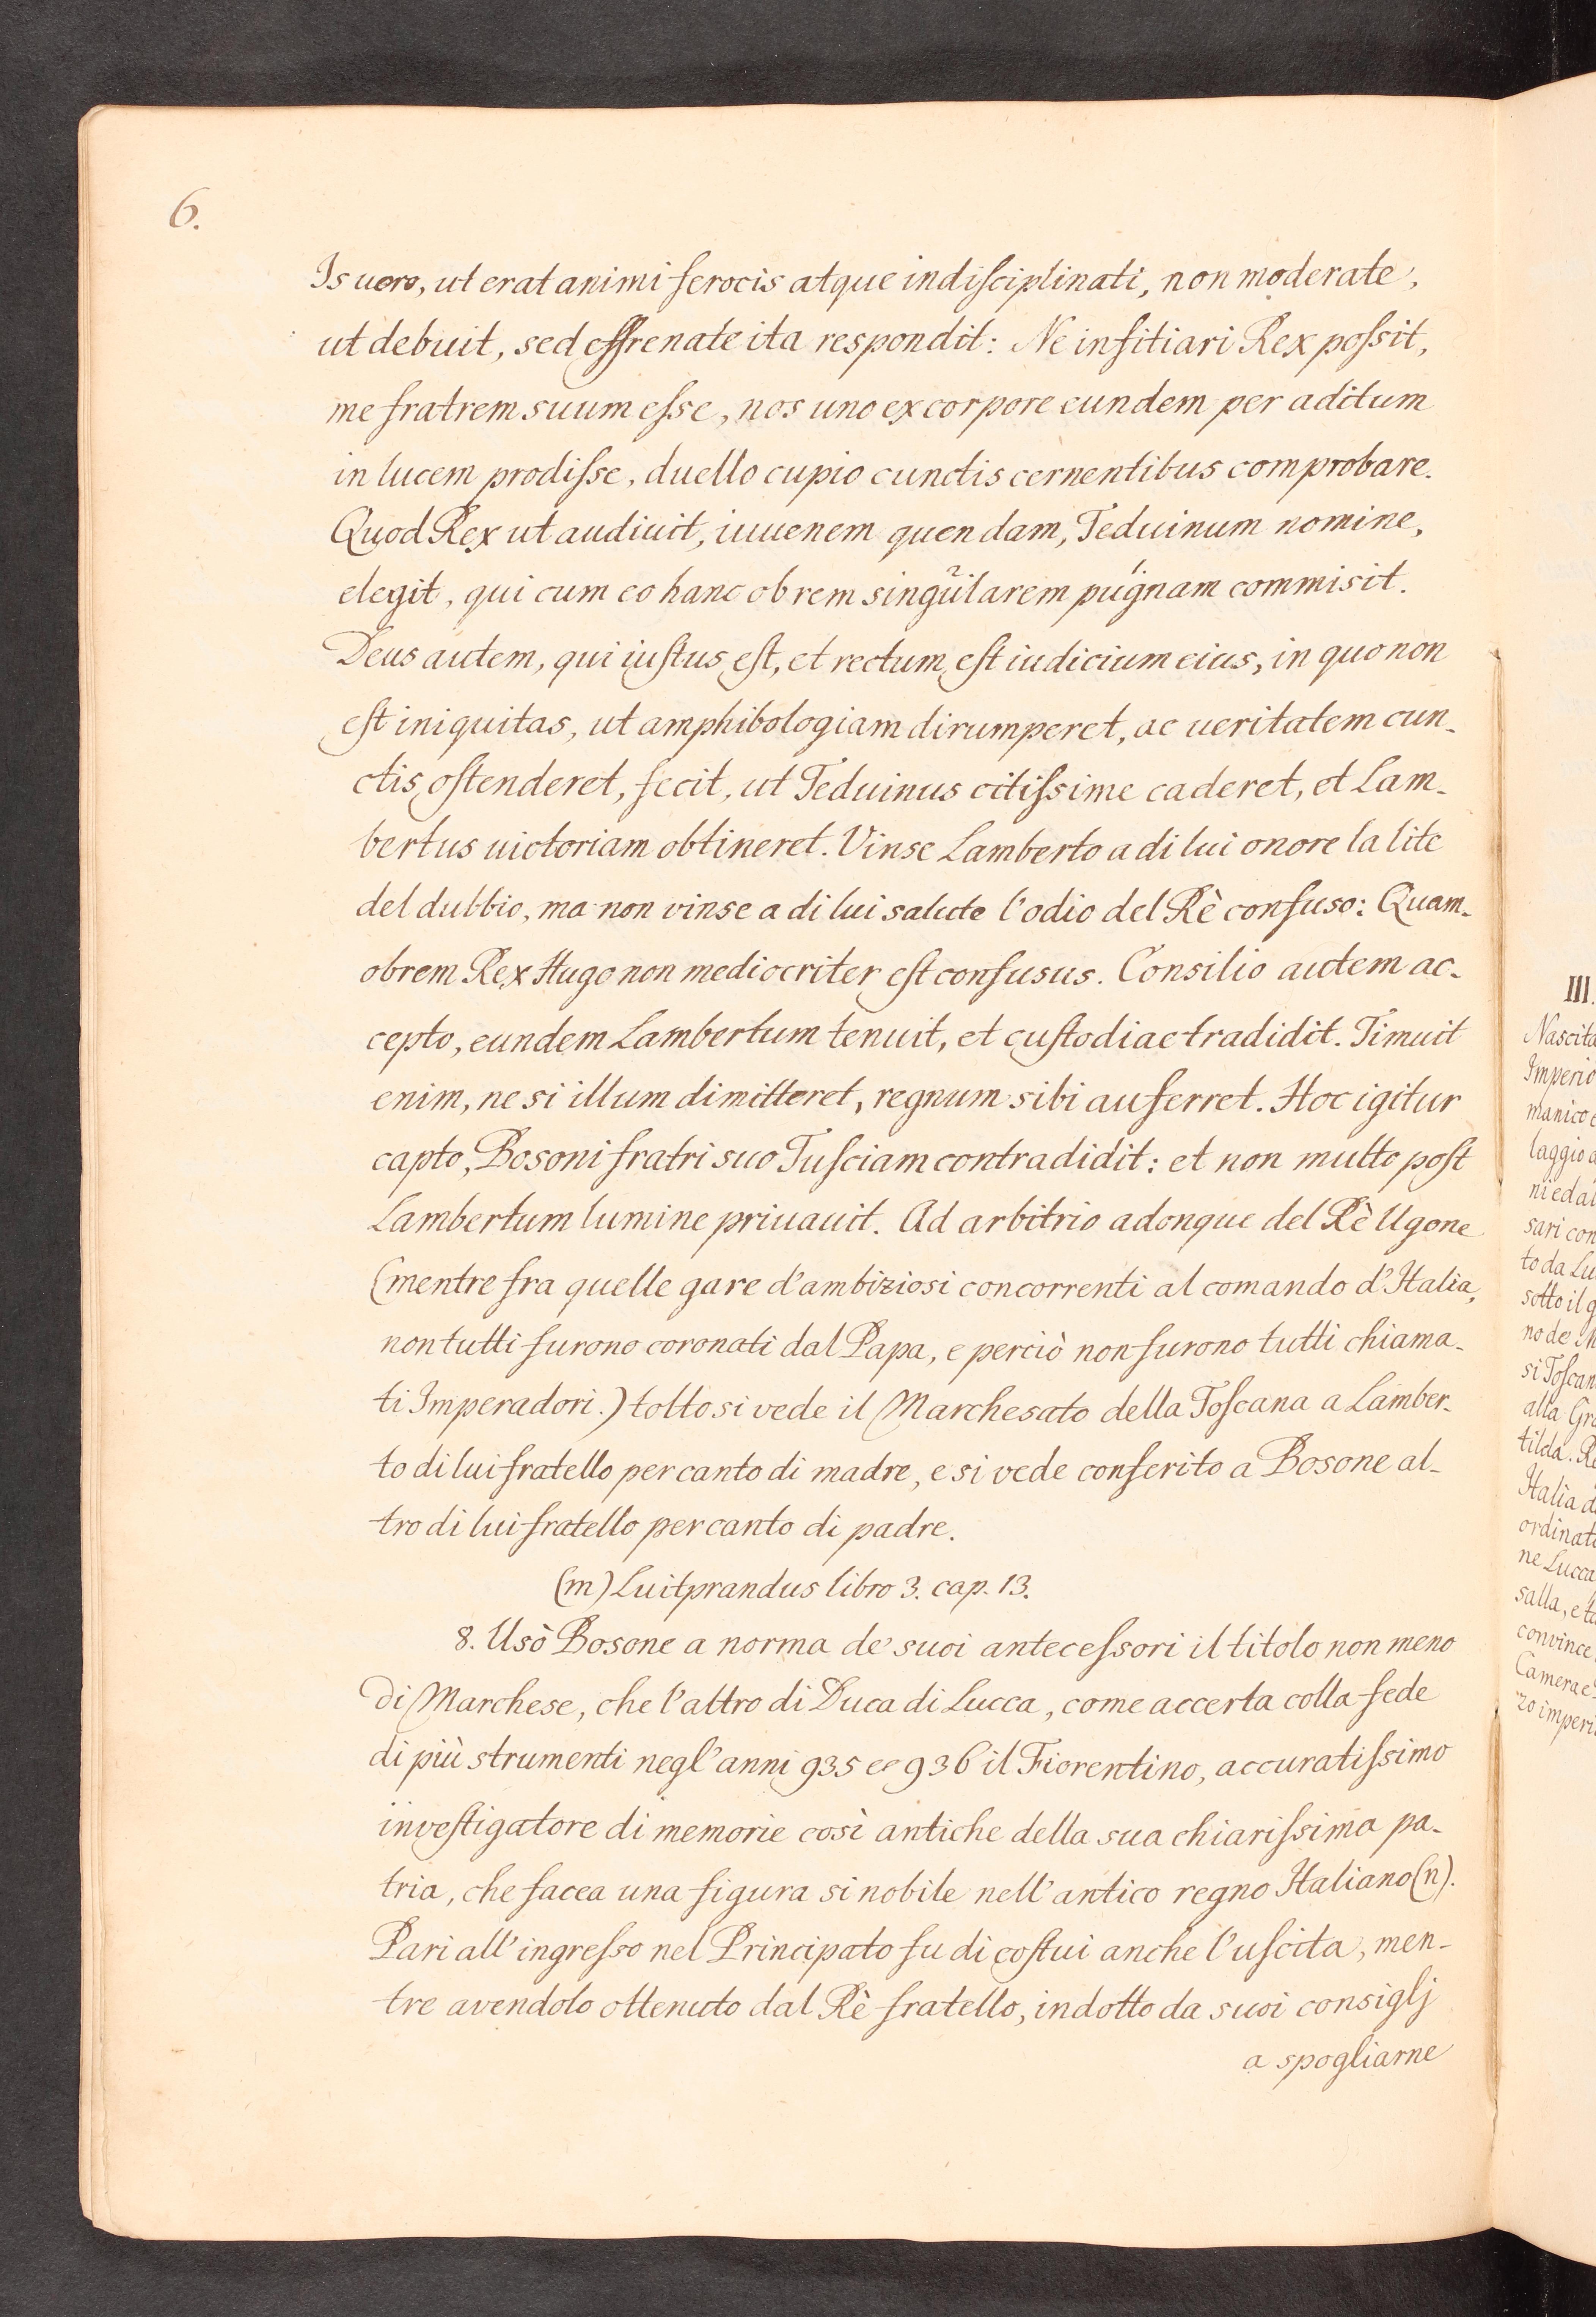 6.
Is uero, ut erat animi ferocis atque indisciplinati, non moderate,
ut debuit, sed effrenate ita respondit: Ne infitiari Rex possit,
me fratrem suum esse, nos uno ex corpore eundem per aditum
in lucem prodisse, duello cupio cunctis cernentibus comprobare.
Quod Rex ut audiuit, iuuenem quendam, Teduinum nomine,
elegit, qui cum eo hanc ob rem singularem pugnam commisit.
Deus autem, qui iustus est, et rectum est iudicium eius, in quo non
est iniquitas, ut amphibologiam dirumperet, ac ueritatem cun-
ctis ostenderet, fecit, ut Teduinus citissime caderet, et Lam-
bertus uictoriam obtineret. Vinse Lamberto a di lui onore la lite
del dubbio, ma non vinse a di lui salute l'odio del Rè confuso: Quam-
obrem Rex Hugo non mediocriter est confusus. Consilio autem ac-
cepto, eundem Lambertum tenuit, et custodiae tradidit. Timuit
enim, ne si illum dimitteret, regnum sibi auferret. Hoc igitur
capto, Bosoni fratri suo Tusciam contradidit: et non multo post
Lambertum lumine priuauit. Ad arbitrio adonque del Rè Ugone
(mentre fra quelle gare d'ambiziosi concorrenti al comando d'Italia,
non tutti furono coronati dal Papa, e perciò non furono tutti chiama-
ti Imperadori.) tolto si vede il Marchesato della Toscana a Lamber-
to di lui fratello per canto di madre, e si vede conferito a Bosone al-
tro di lui fratello per canto di padre.
(m) Luitprandus libro 3. cap. 13.
8. Usò Bosone a norma de' suoi antecessori il titolo non meno
di Marchese, che l'altro di Duca di Lucca, come accerta colla fede
di più strumenti negl'anni 935 e 936 il Fiorentino, accuratissimo
investigatore di memorie così antiche della sua chiarissima pa-
tria, che facea una figura si nobile nell'antico regno Italiano (n).
Pari all'ingresso nel Principato fu di costui anche l'uscita, men-
tre avendolo ottenuto dal Rè fratello, indotto da suoi consiglj
a spogliarne
III.
Nascita
Imperio
manico
laggio
ni e dal
sari con
to da Lu
sotto il g
no de M
si Toscan
alla Gr
tilda. Re
Italia d
ordinat
ne Lucca
salla, e
convince
Camera e
zo imperi